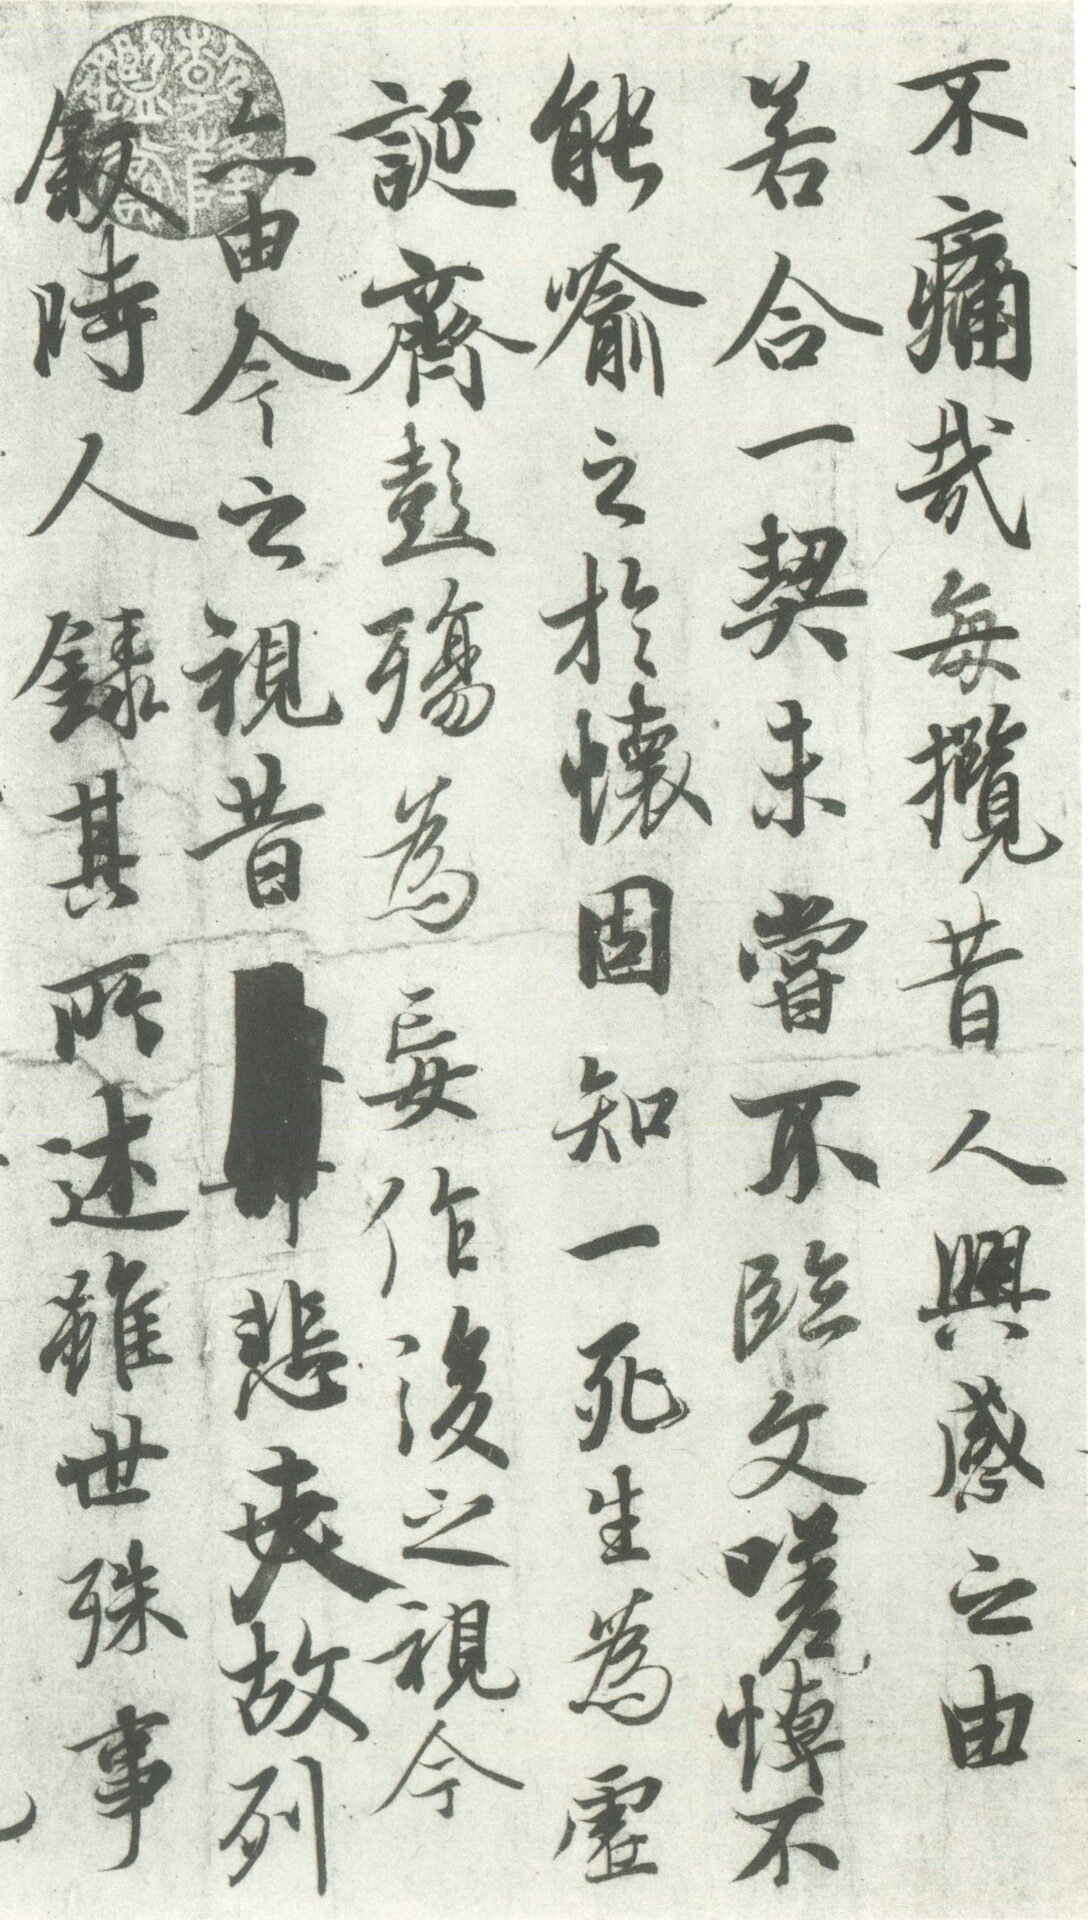 不痛哉每攬昔人興感之由
若合一契未嘗不臨文嗟悼不
能喻之於懷固知一死生為虛
誕齊彭殤為妄作後之視今
亦由今之視昔悲夫故列
敘時人錄其所述雖世殊事
乾隆鑑賞